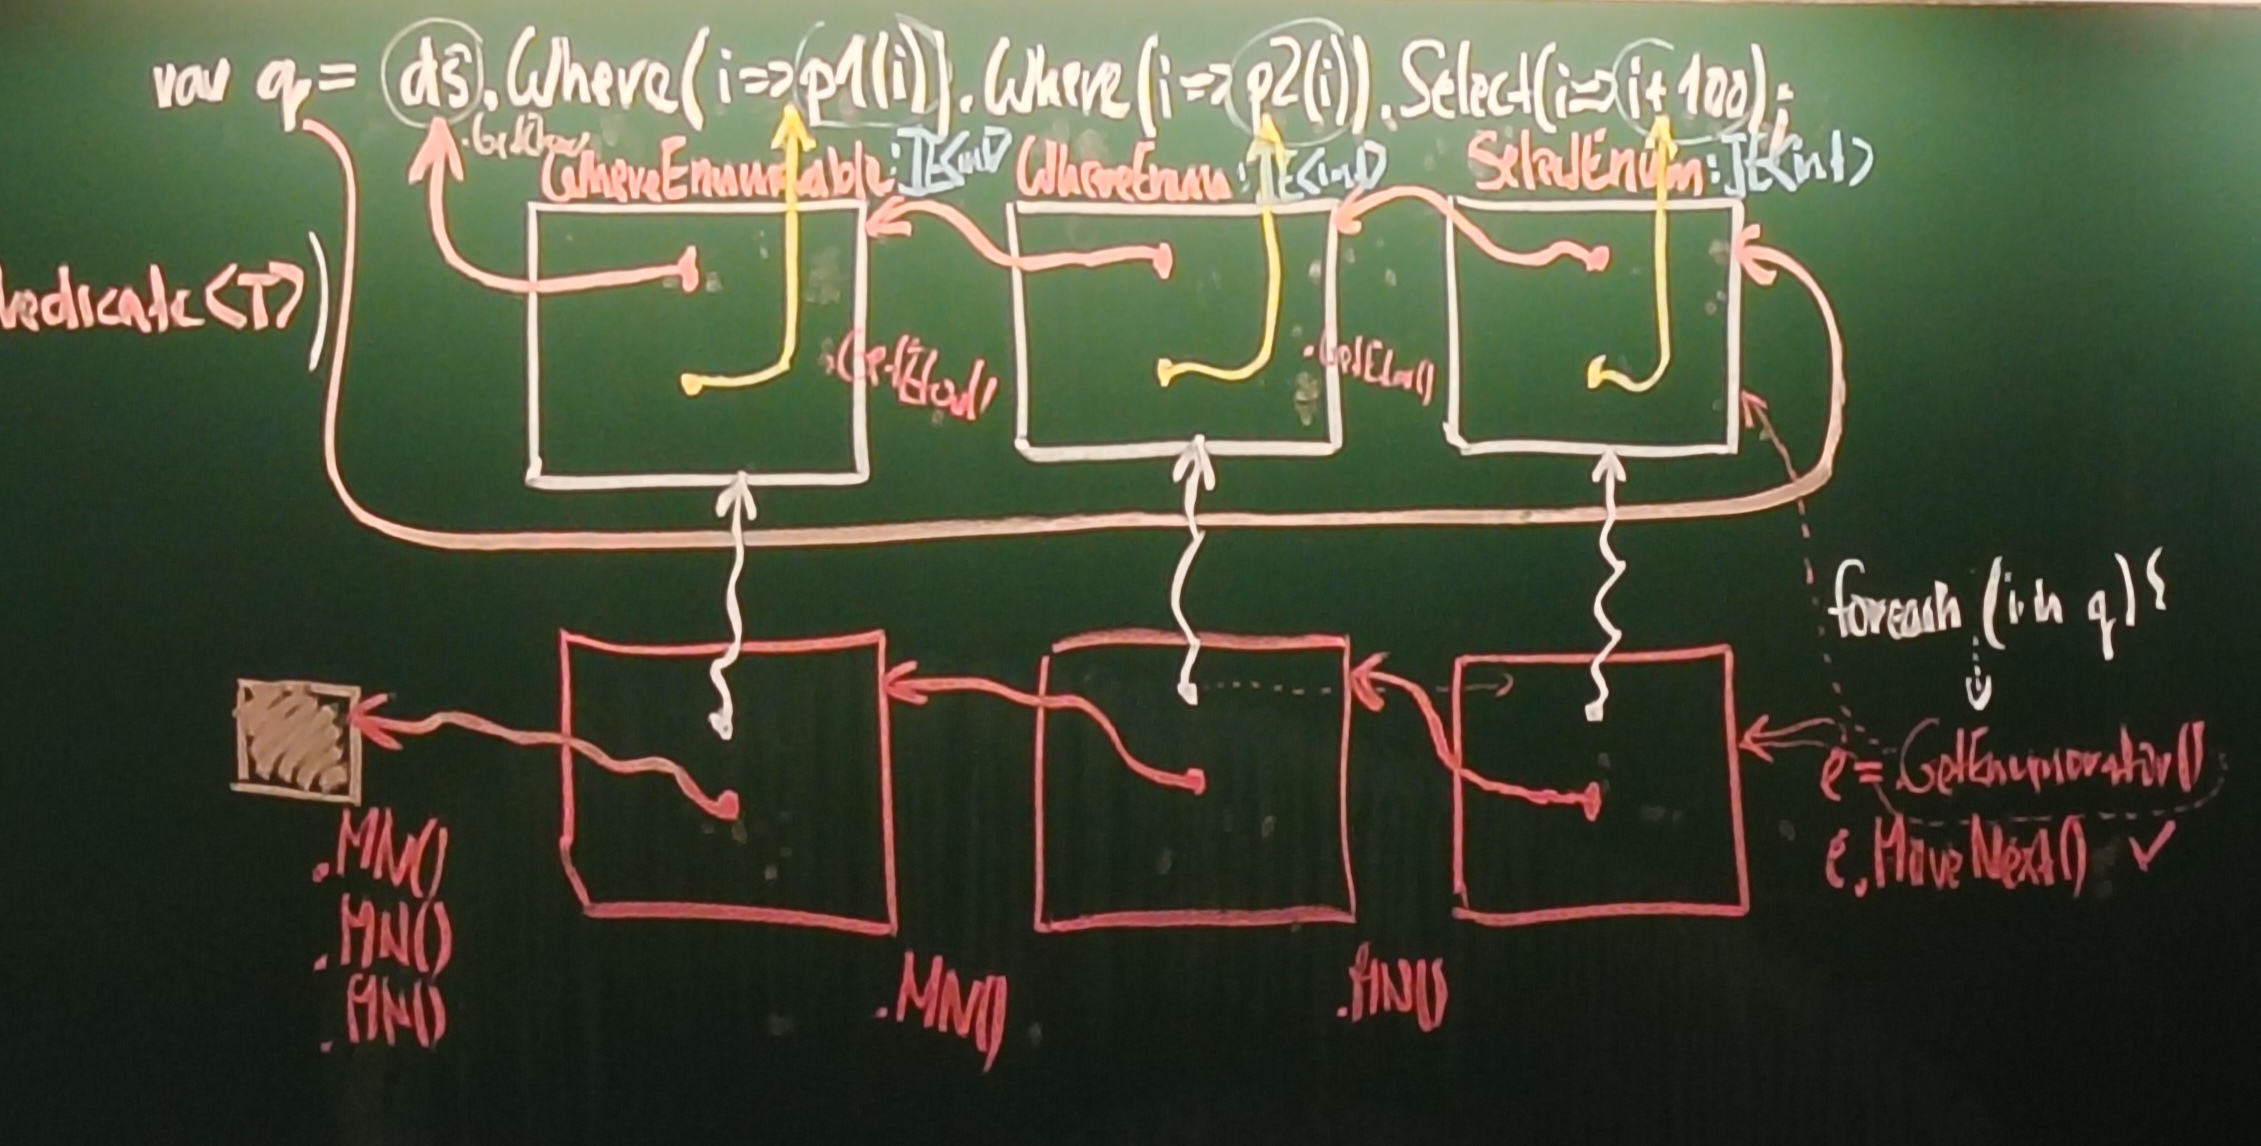 var q = ds.Where(i=>p1(i)).Where(i=>p2(i)).Select(i=>i+100);
WhereEnumerable:IE<int> WhereEnum:IE<int> SelectEnum:IE<int>
edicate<T>)
foreach (i in q) {
e = .GetEnumerator()
e.MoveNext() ✓
.MN()
.MN()
.MN()
.MN()
.MN()